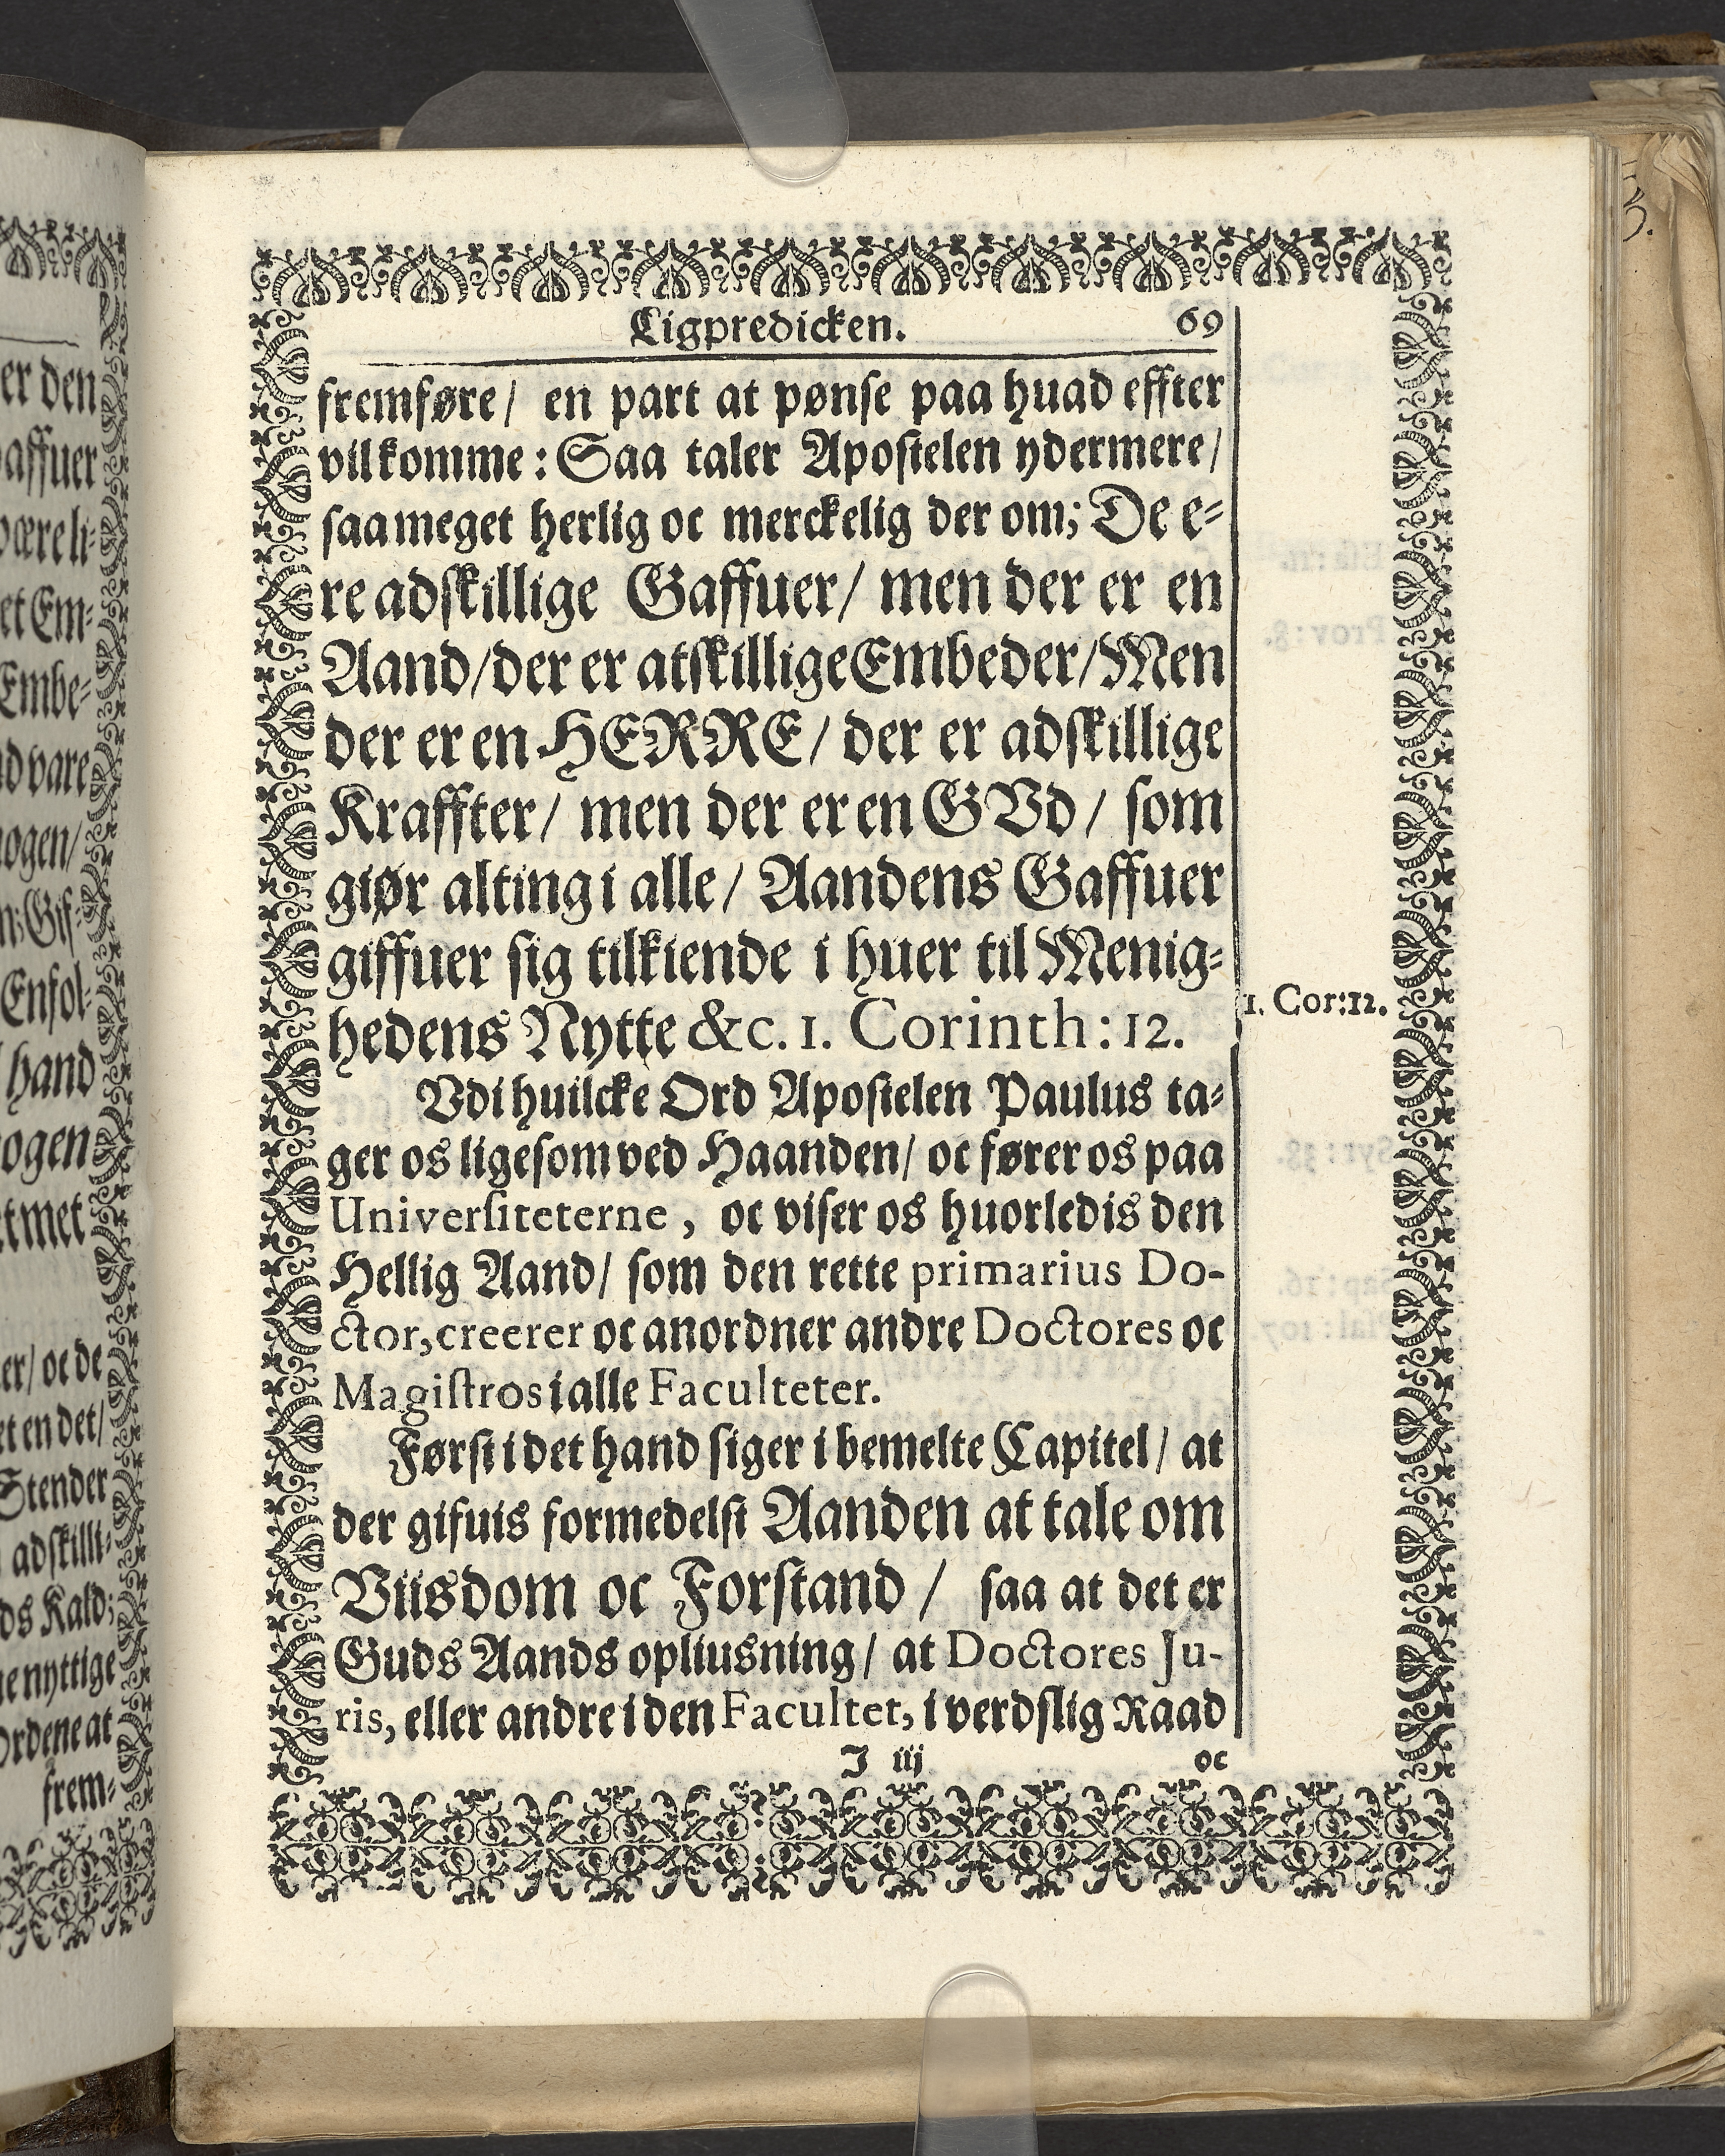 Ligpredicken. 69
fremføre/ en part at pønse paa huad effter
vilkomme: Saa taler Apostelen ydermere/
saameget herlig oc merckelig der om; De e-
re adskillige Gaffuer/ men der er en
Aand/der er atskillige Embeder/Men
der er en HERRE/ der er adskillige
Kraffter/ men der er en GVd/ som
giør alting i alle/ Aandens Gaffuer
giffuer sig tilkiende i huer til Menig-
hedens Nytte &c. 1. Corinth: 12.
1. Cor:12.
Vdi huilcke Ord Apostelen Paulus ta-
ger os ligesom ved Haanden/ oc fører os paa
Universiteterne, oc viser os huorledis den
Hellig Aand/ som den rette primarius Do-
ctor, creerer oc anordner andre Doctores oc
Magistros i alle Faculteter.
Først i det hand siger i bemelte Capitel/ at
der gifuis formedelst Aanden at tale om
Viisdom oc Forstand/ saa at det er
Guds Aands opliusning/ at Doctores Ju-
ris, eller andre i den Facultet, i verdslig Raad
I iij oc
er den
affuer
være li-
et Em-
Embe-
d vare
ogen/
Enfol-
hand
ogen
met
er/ oc de
et en det/
Stender
adskilli-
ds Kald;
nyttige
Ordene at
frem-